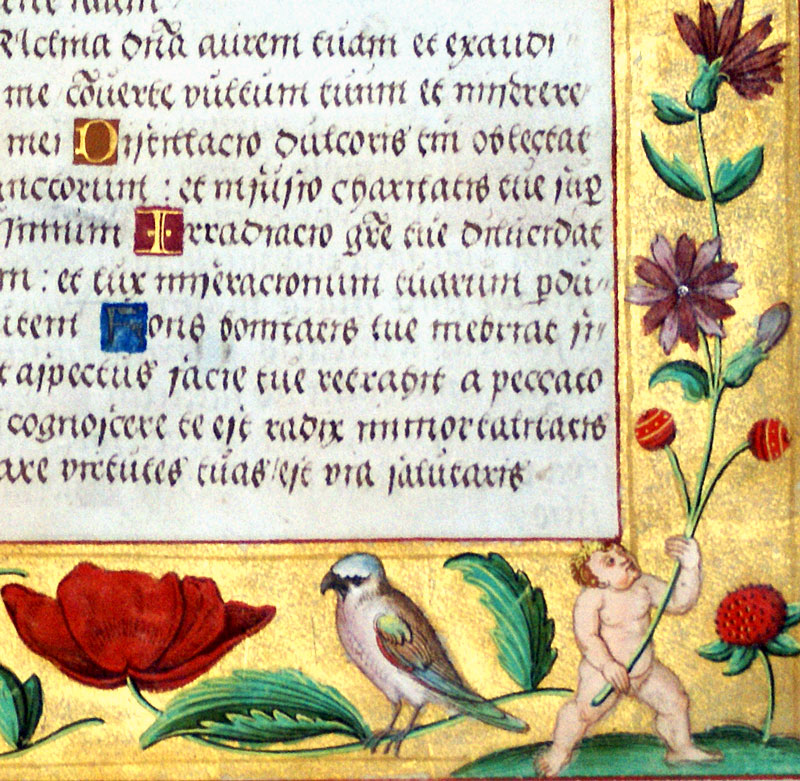 Inclina dnã aurem tuam et exaudi
me cõuerte vultum tuum et miserere
mei Distillacio dulcoris tui oblectat
anctorum : et infusio charitatis tue sup
ssimum Irradiacio gre tue dilucidat
m : et lux miseracionum tuarum pdu-
utem Fons bonitatis tue inebriat si-
t aspectus facie tue retrahit a peccato
cognoscere te est radix immortalitatis
are virtutes tuas est via salutaris